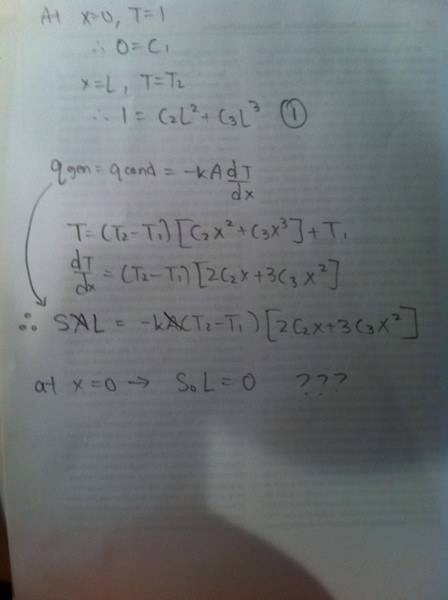 At x=0, T=1
∴ 0=C₁
x=L, T=T₂
∴ 1= C₂L²+C₃L³ ①
qgen=qcond = -kA dT/dx
T=(T₂-T₁)[C₂x²+C₃x³]+T₁
dT/dx=(T₂-T₁)[2C₂x+3C₃x²]
∴ SAL = -kA(T₂-T₁)[2C₂x+3C₃x²]
at x=0→ S₀L=0 ???